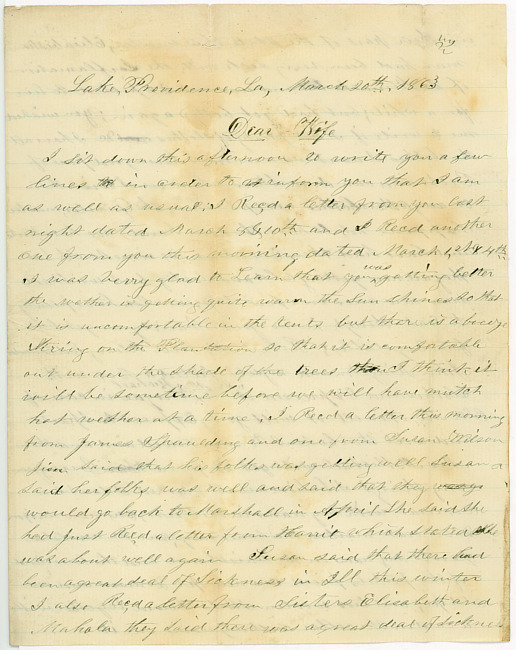 Lake Providence, La, March 20th, 1863
Dear Wife
I sit down this afternoon to write you a few
lines in order to inform you that I am
as well as usual, I Recd a letter from you last
night dated March 10th and I Recd another
one from you this morning dated March
I was verry glad to Learn that you was getting better
the wether is geting quite warm the Sun Shines so that
it is uncomfortable in the tents but there is a
String on the Plantation so that it is comfortable
out under the shade of the trees I think it
will be sometime before we will have mutch
hot wether at a time, I Recd a letter this morning
from James Spraulding and one from Susan Wilson
Jim said that his folks was getting well Susan
Said her folks was well and said that they
would go back to Marshall in April She said she
had just Recd a letter from Harrit which stated she
was about well again Susan said that there had
been a great deal of Sickness in Ill this winter
I also Recd a letter from Sisters Elisabeth and
Mahala they said there was a great deal of Sickness